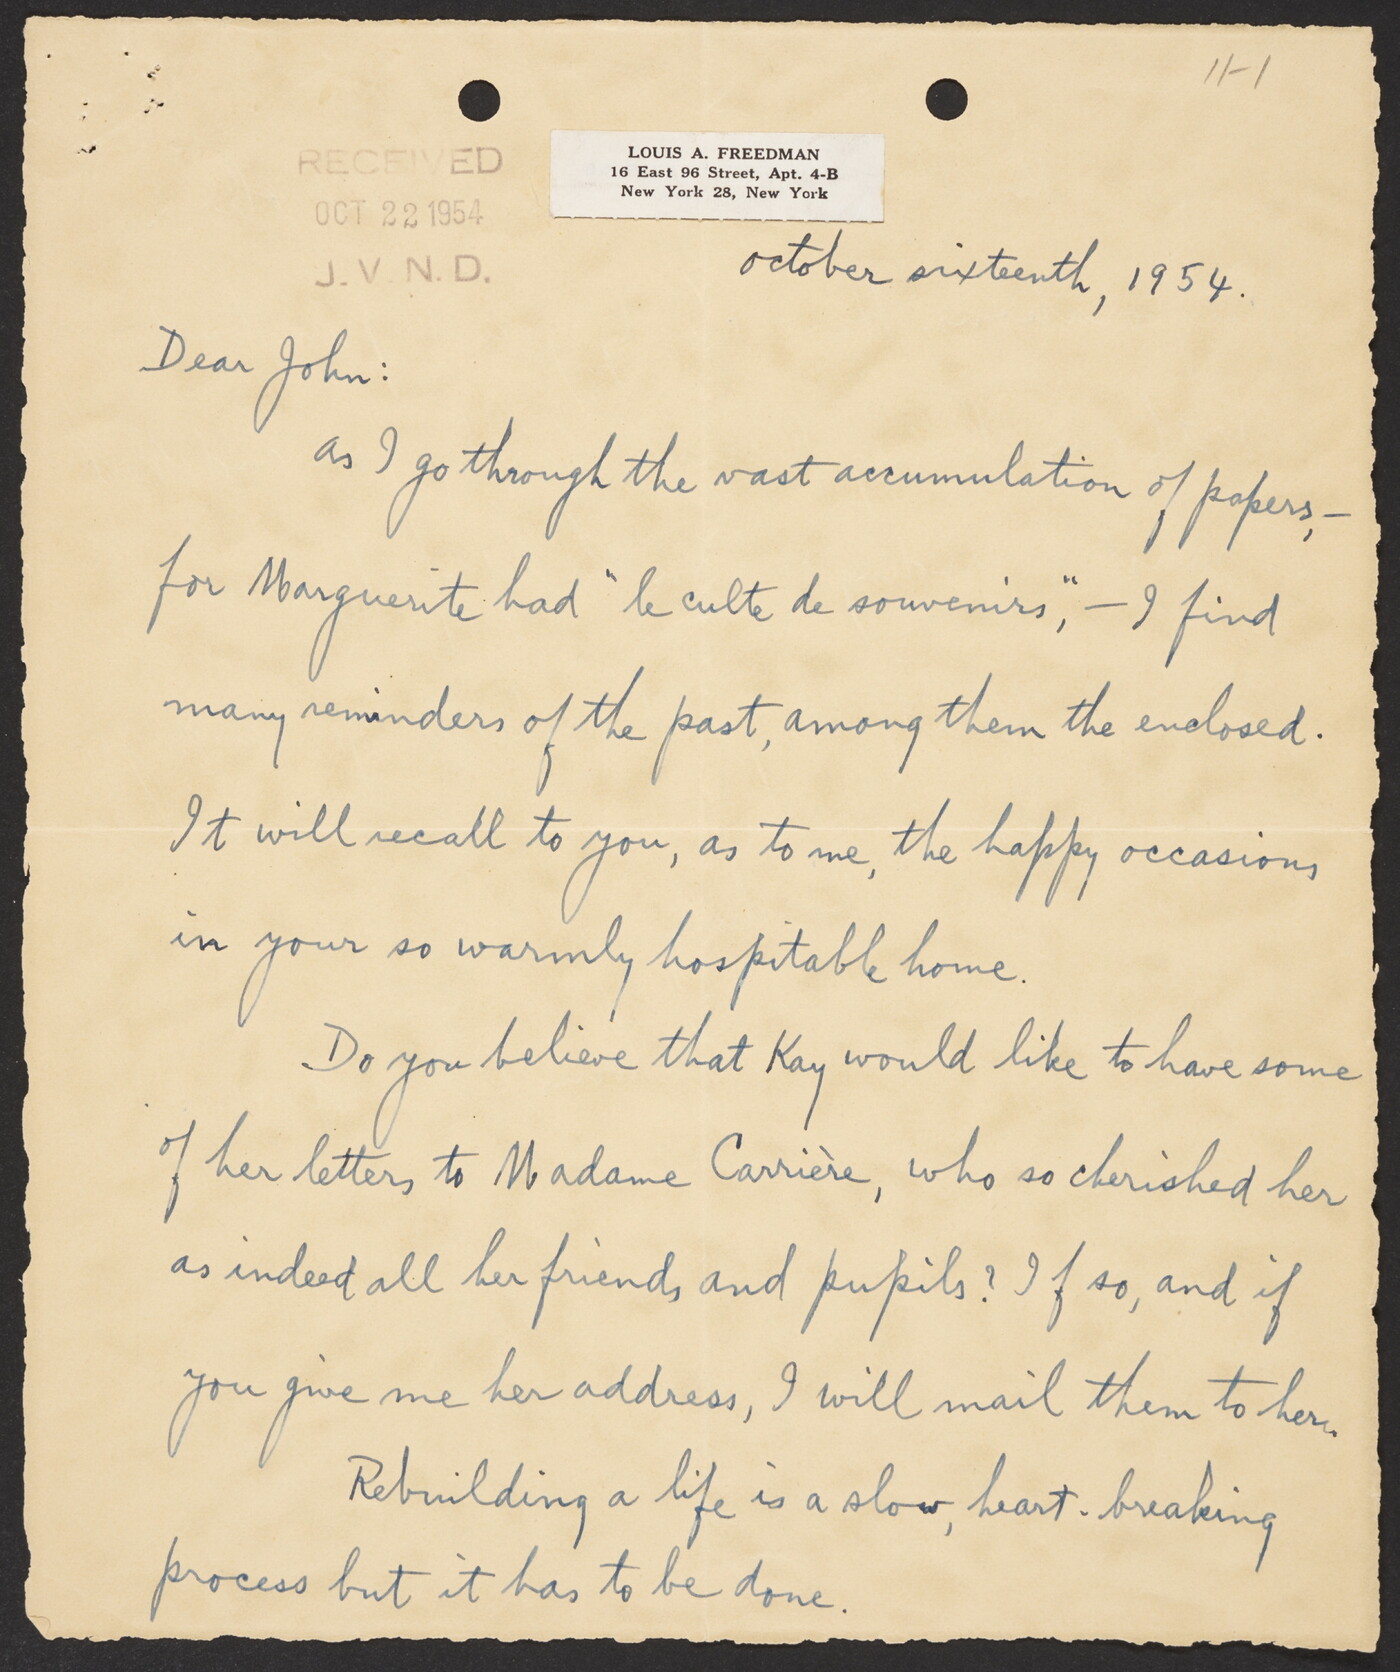 11-1
RECEIVED
OCT 22 1954
J. V. N. D.
LOUIS A. FREEDMAN
16 East 96 Street, Apt. 4-B
New York 28, New York
october sixteenth, 1954.
Dear John:
as I go through the vast accumulation of papers, —
for Marguerite had "le culte de souvenirs", — I find
many reminders of the past, among them the enclosed.
It will recall to you, as to me, the happy occasions
in your so warmly hospitable home.
Do you believe that Kay would like to have some
of her letters to Madame Carrière, who so cherished her
as indeed all her friends and pupils? If so, and if
you give me her address, I will mail them to her.
Rebuilding a life is a slow, heart-breaking
process but it has to be done.